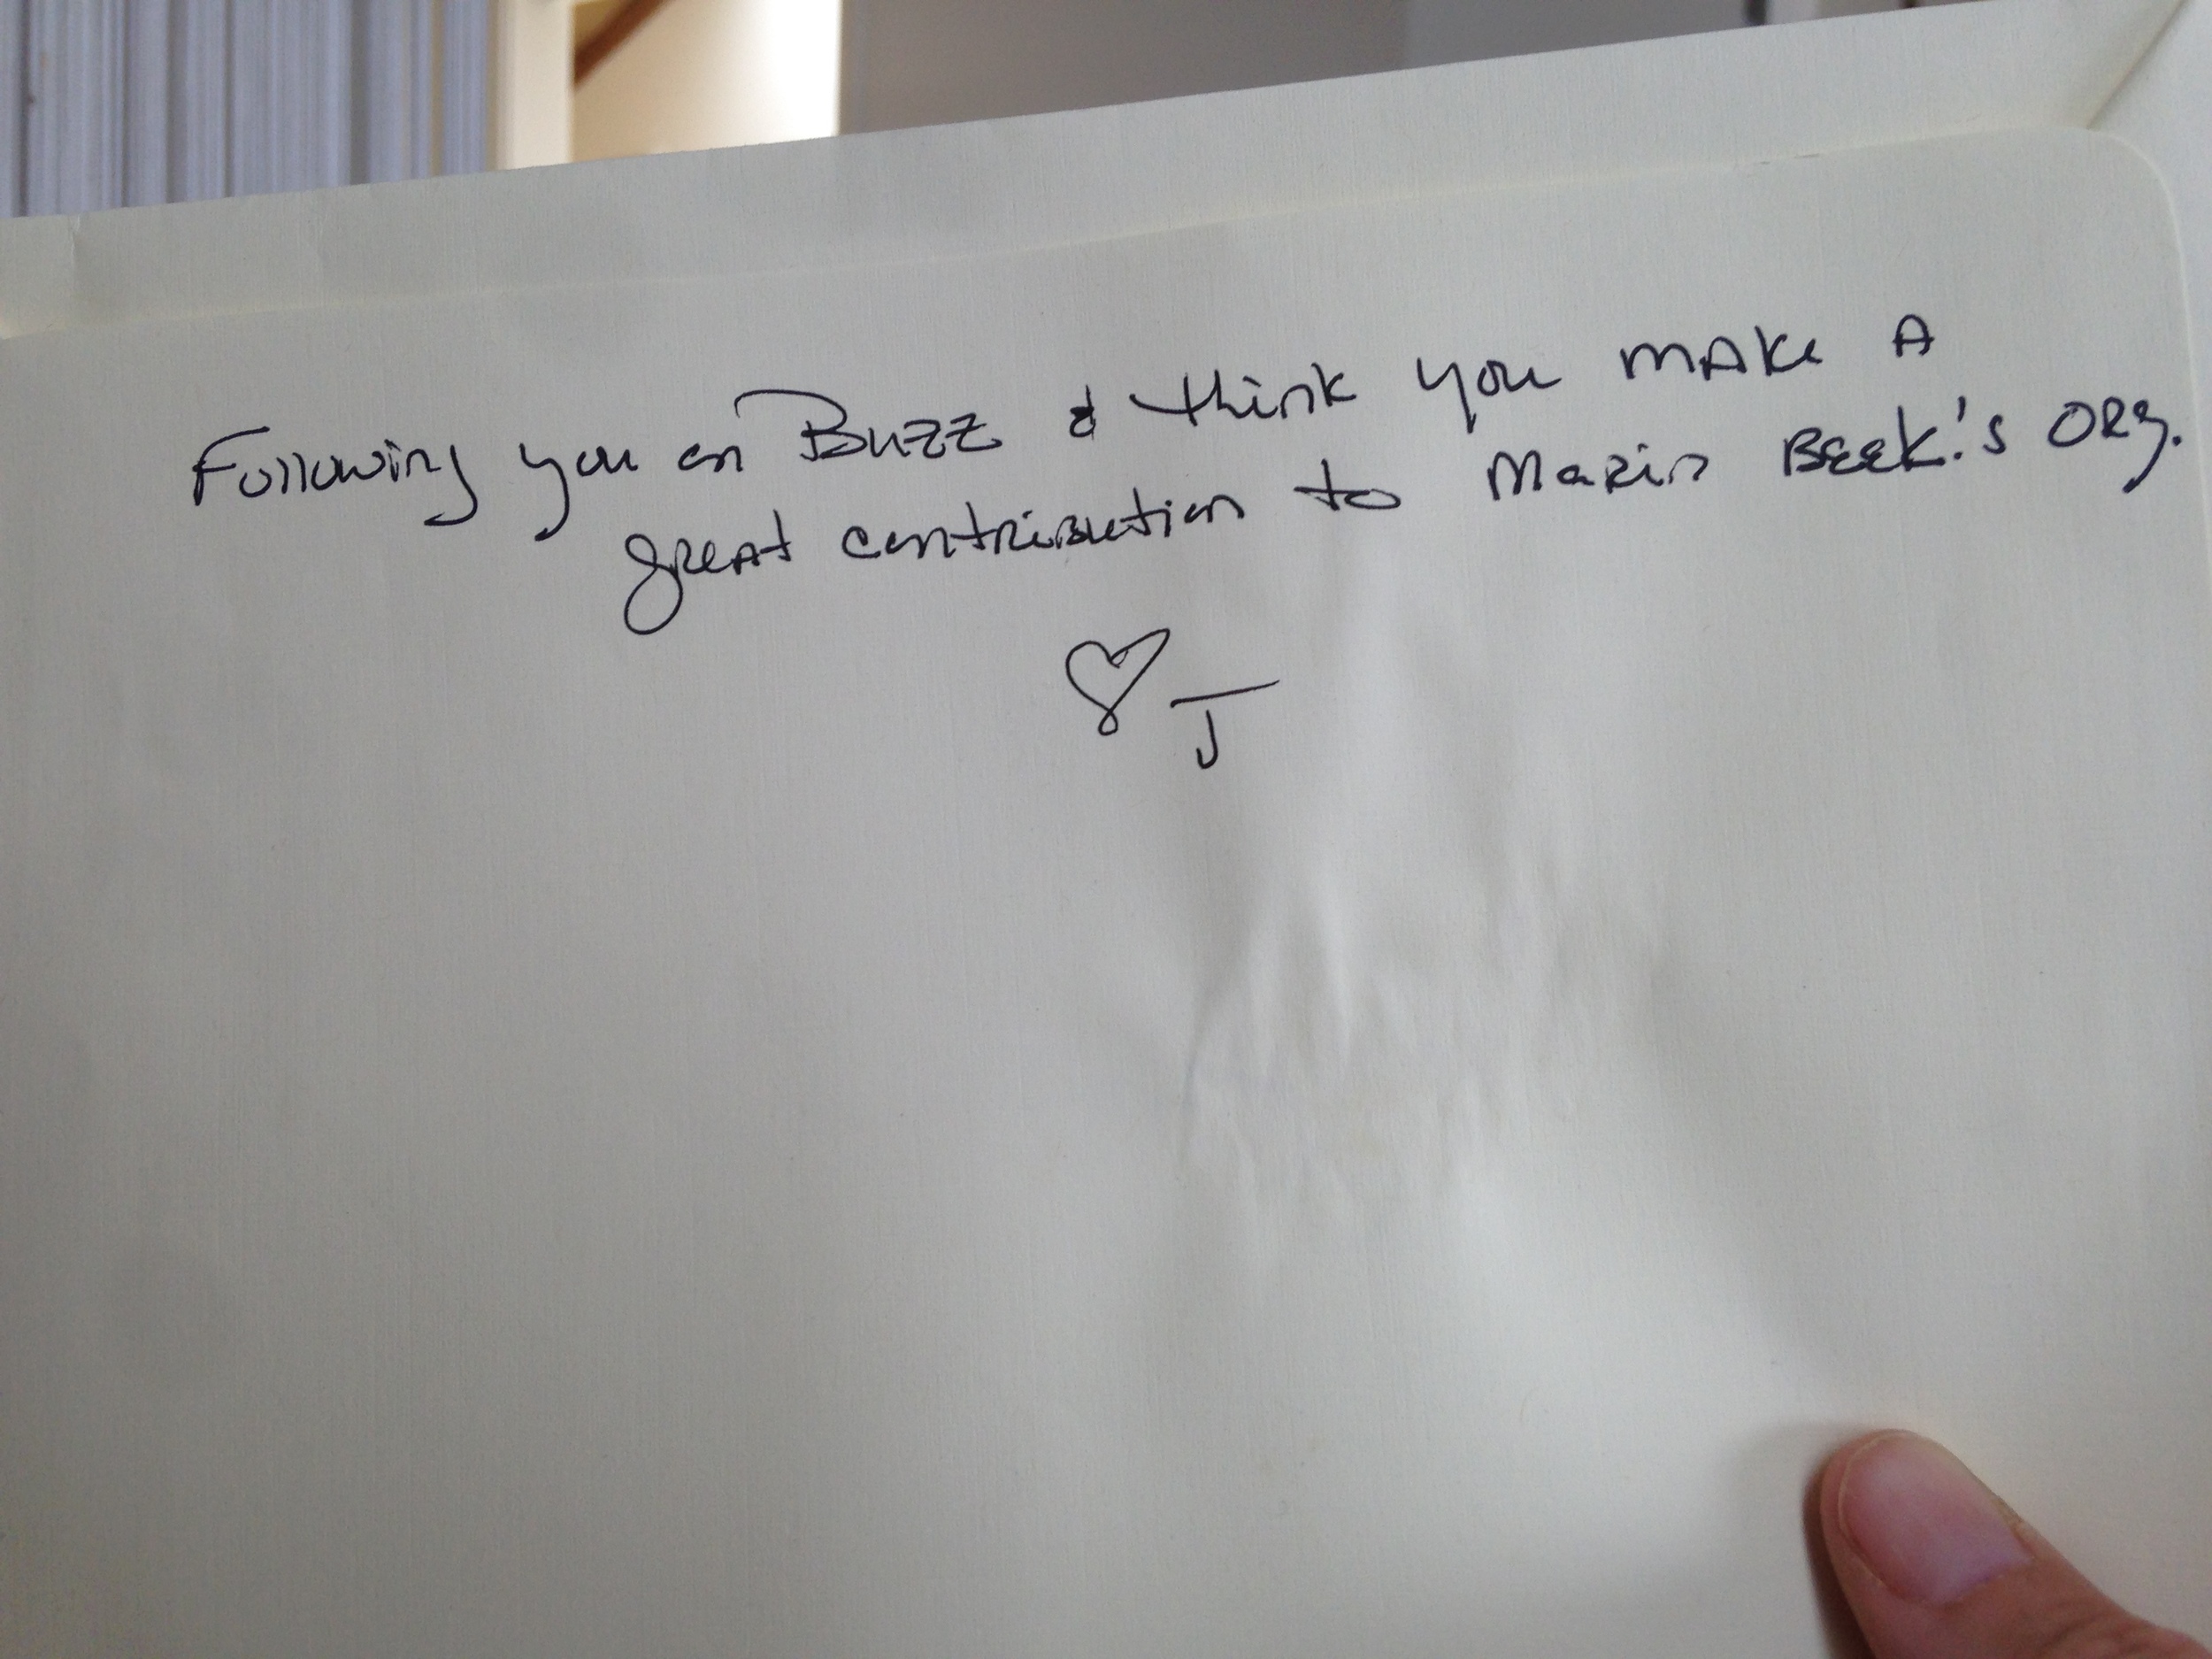 Following you on Buzz & think you make A
great contribution to Marin Beek's org.
♡ J